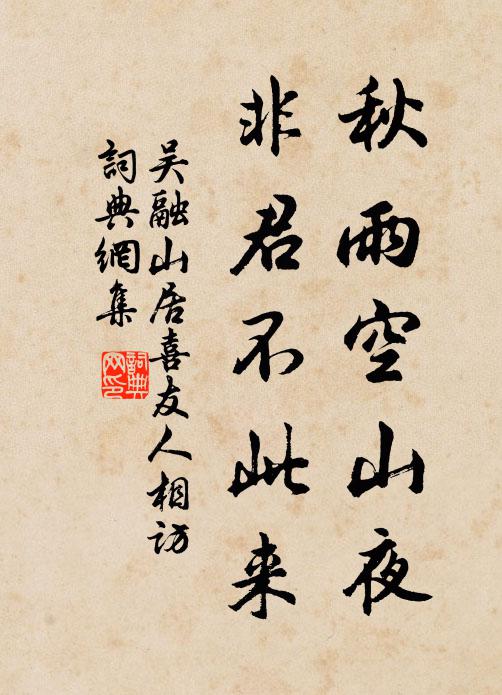 秋雨空山夜
非君不此来
吴融山居喜友人相访
詞典網集
詞典
网印